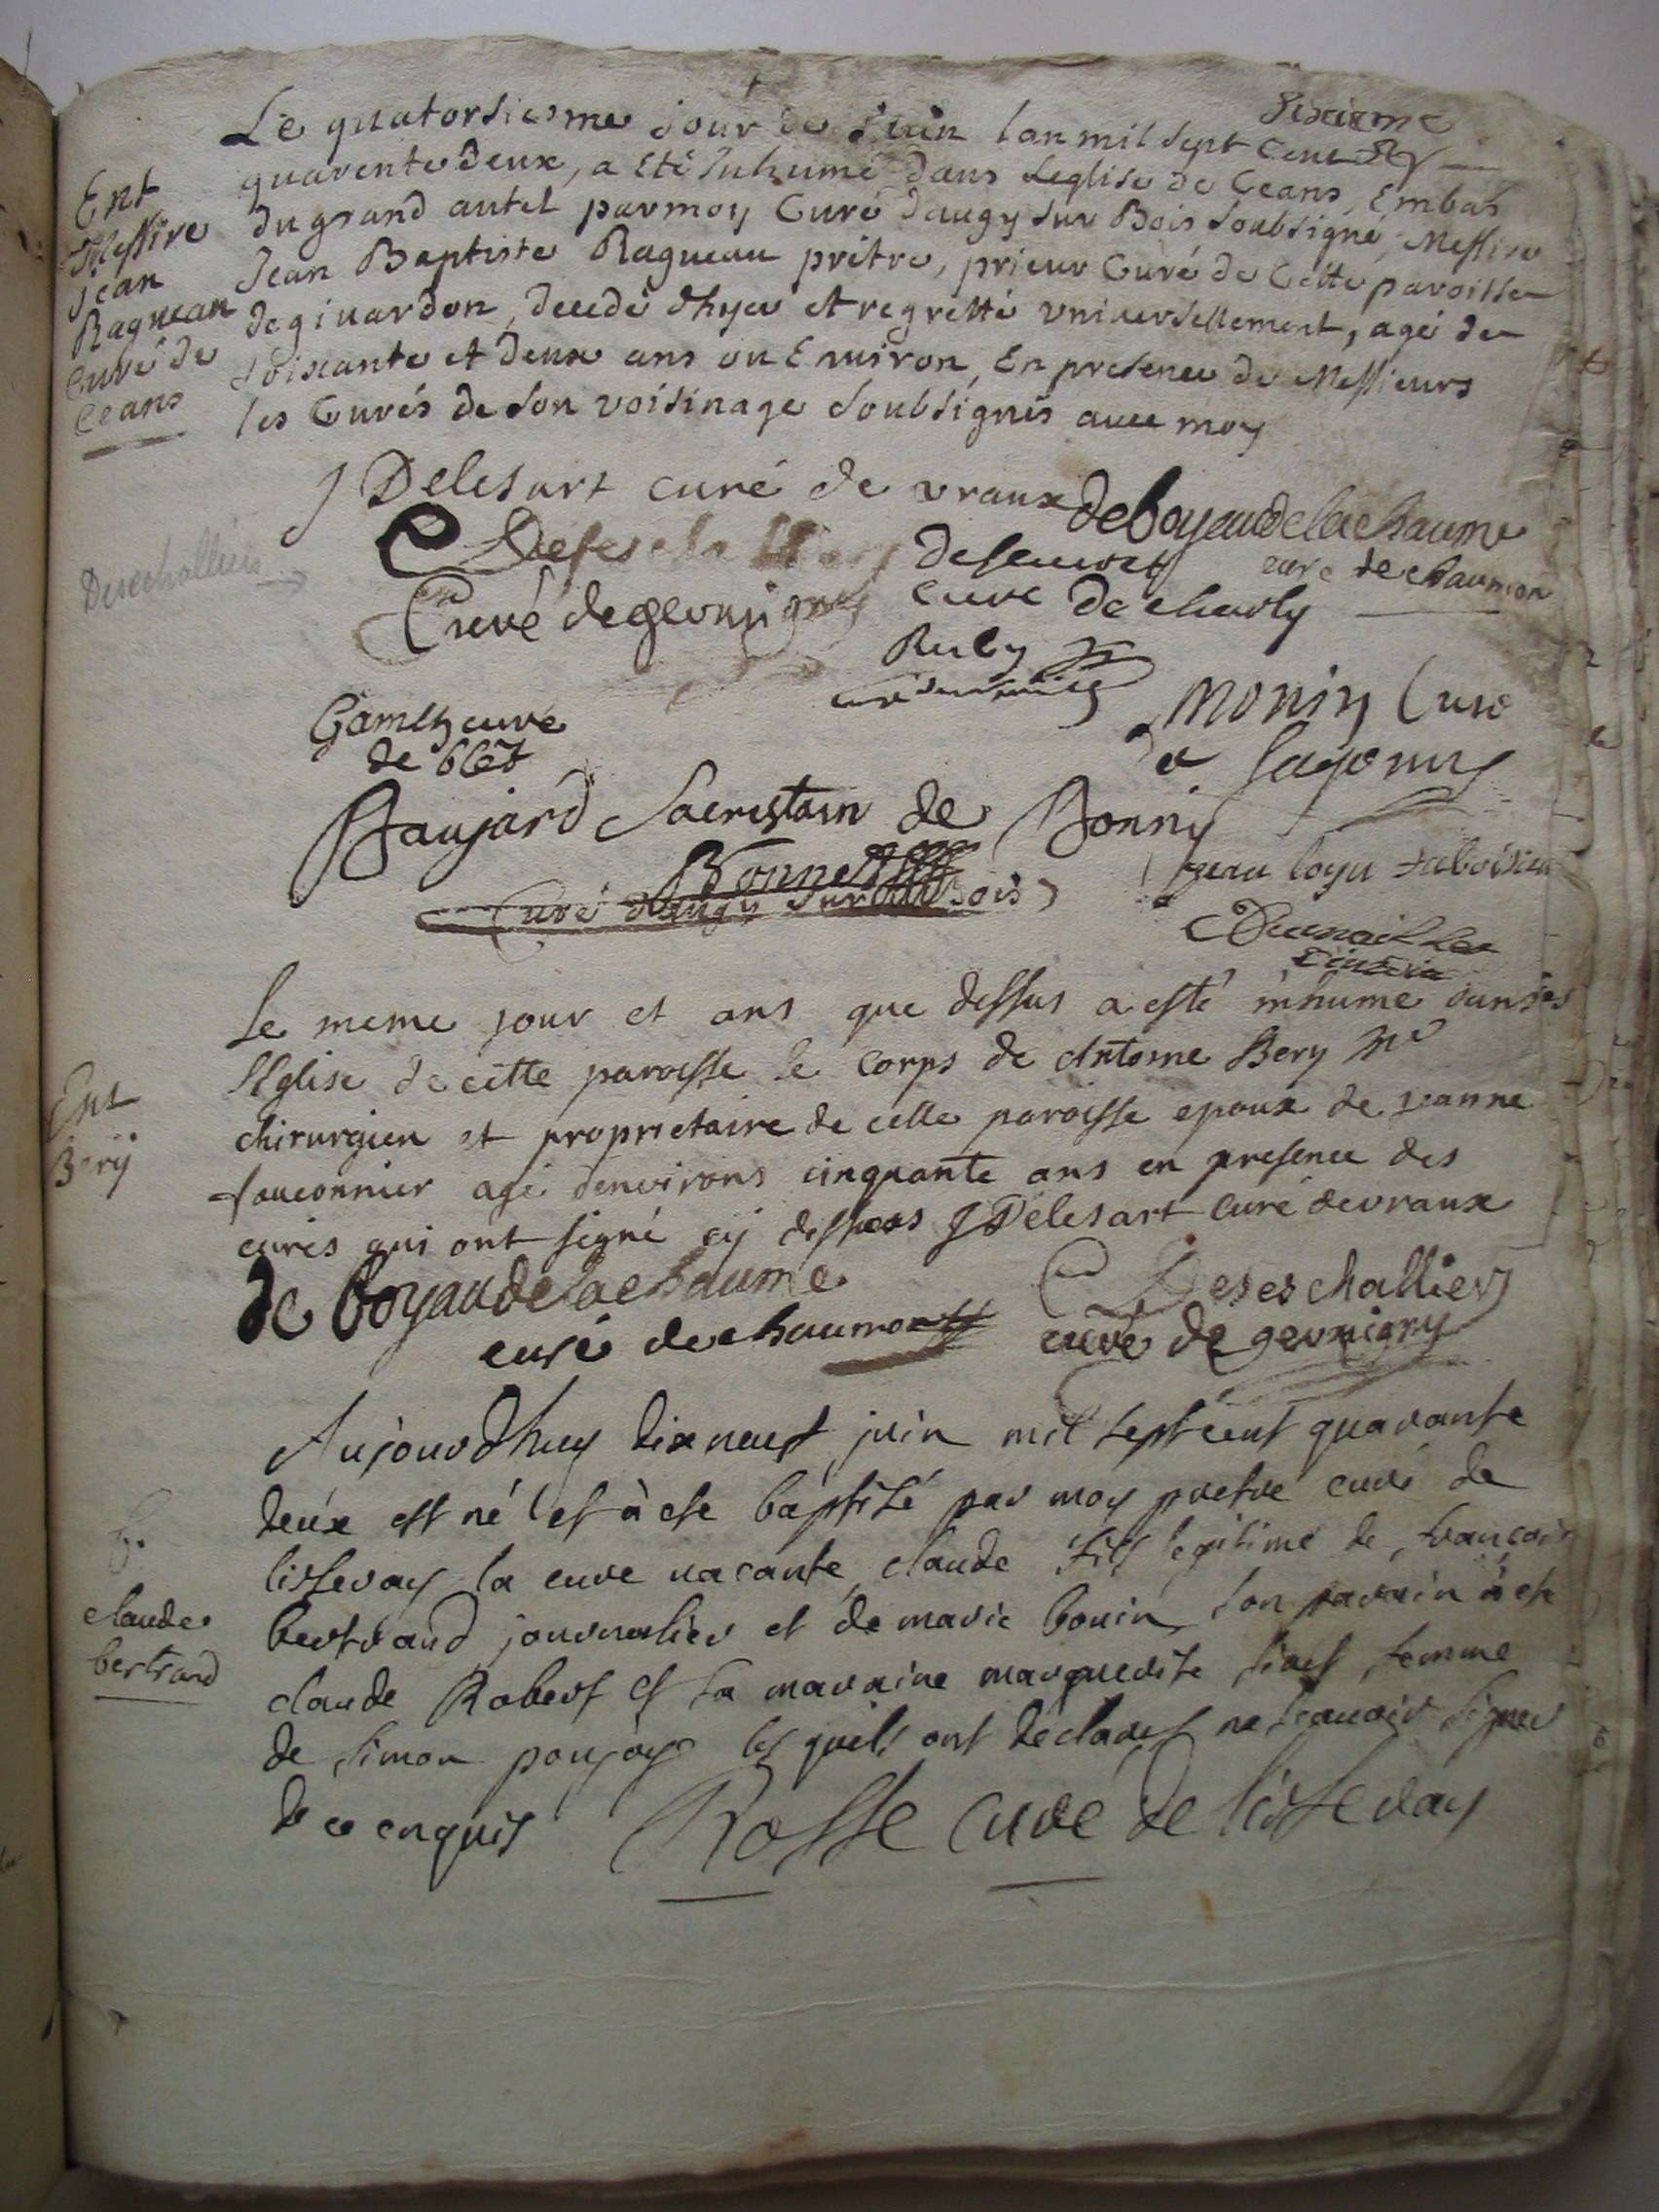 Sixieme
Le quatorsiesme jour de Juin lan mil sept Cent
quarente deux, a Eté Inhumé dans Leglise de Ceans, Embas
du grand autel par moy Curé daugy sur Bois soubsigné, Messire
Jean Baptiste Ragueau prêtre, prieur Curé de Cette paroisse
de givardon, decedé d'hyer et regretté vniversellement, agé de
soixante et deux ans ou Environ, En presence de Messieurs
les Curés de son voisinage soubsignés avec moy
Ent
Messire
Jean
Ragueau
Curé de
Ceans
J Delesart curé de vraux
deboyaudelachaume
curé de chaumon
Curé de germigny
curé de charly
Desechalliers
Ruby
Monin Curé
de sagonny
Gamet curé
de blet
Baujard Sacristain de
Bonnet
Curé daugy sur Bois
Le meme jour et ans que dessus a esté inhumé dans
l'Eglise de cette paroisse le corps de Antoine Bery me
chirurgien et proprietaire de celle paroisse epoux de jeanne
fauconnier agé denvirons cinquante ans en presence des
curés qui ont signé cy dessus J Delesart curé devraux
Ent
Bery
de boyaudelachaume
curé de chaumont
Deseschalliers
curé de germigny
Aujourdhuy dixneuf juin mil sept cent quarante
deux est né et à esté baptisé par moy pretre curé de
lissevay la cure vacante, claude fils legitime de françois
bertrand journalier et de marie bouin, son parain à esté
claude Robert et sa maraine marguerite femme
de simon les quels ont declaré ne scauoir signer
de ce enquis Rosse curé de lissevay
b.
claude
bertrand